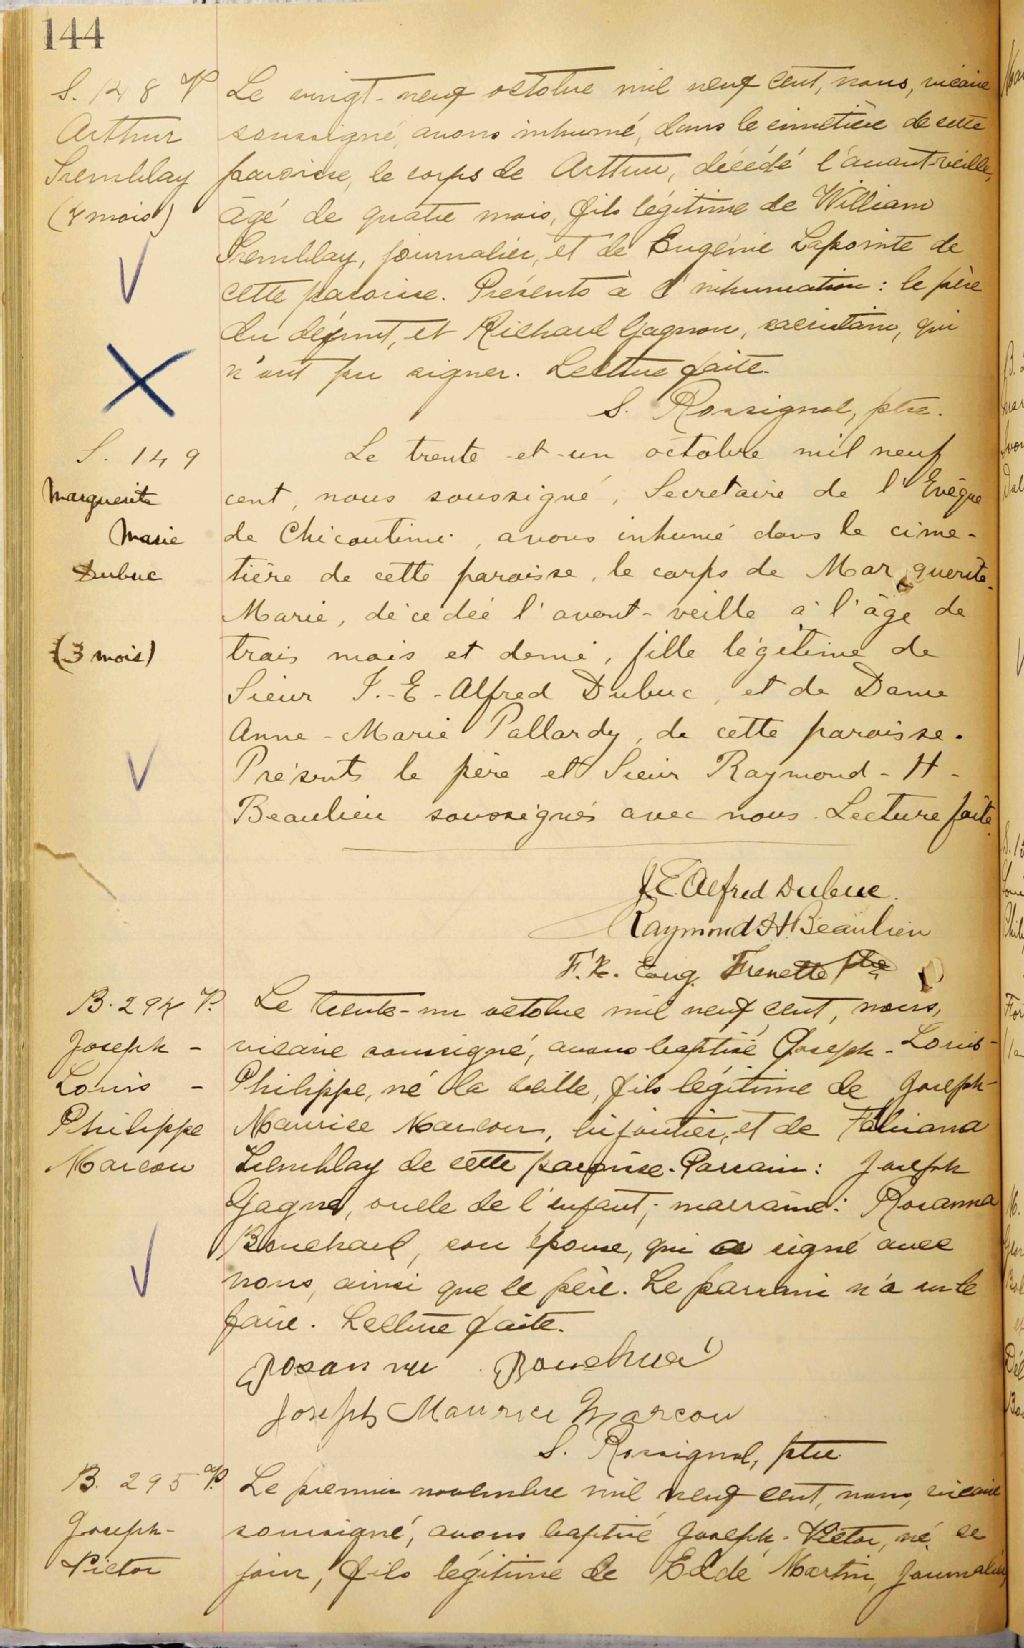 144
S. 148 P
Arthur
Tremblay
(4 mois)
Le vingt-neuf octobre mil neuf cent, nous, vicaire
soussigné, avons inhumé, dans le cimetière de cette
paroisse, le corps de Arthur, décédé l'avant-veille,
âgé de quatre mois, fils légitime de William
Tremblay, journalier, et de Eugénie Lapointe de
cette paroisse. Présents à l'inhumation : le père
du défunt, et Richard Gagnon, sacristain, qui
n'ont pu signer. Lecture faite.
S. Rossignol, ptre.
S. 149
Marguerite
Marie
Dubuc
(3 mois)
Le trente-et-un octobre mil neuf
cent, nous soussigné, Secretaire de l'Evêque
de Chicoutimi, avons inhumé dans le cime-
tière de cette paroisse, le corps de Marguerite-
Marie, décédée l'avant-veille à l'âge de
trois mois et demi, fille légitime de
Sieur J.-E-Alfred Dubuc, et de Dame
Anne-Marie Pallardy, de cette paroisse.
Présents le père et Sieur Raymond-H-
Beaulieu soussignés avec nous. Lecture faite.
J E Alfred Dubuc.
Raymond H. Beaulieu
F.X. Eug. Frenette ptre
B. 294 P.
Joseph -
Louis -
Philippe
Marcou
Le trente-un octobre mil neuf cent, nous,
vicaire soussigné, avons baptisé Joseph-Louis-
Philippe, né la veille, fils légitime de Joseph-
Maurice Marcou, bijoutier, et de Fabiana
Tremblay de cette paroisse. Parrain : Joseph
Gagné, oncle de l'enfant; marraine : Rosanna
Bouchard, son épouse, qui a signé avec
nous, ainsi que le père. Le parrain n'a su le
faire. Lecture faite.
Rosanna Bouchard
Joseph Maurice Marcou
S. Rossignol, ptre
B. 295 P.
Joseph-
Victor
Le premier novembre mil neuf cent, nous, vicaire
soussigné, avons baptisé Joseph-Victor, né ce
jour, fils légitime de Martin, journalier,